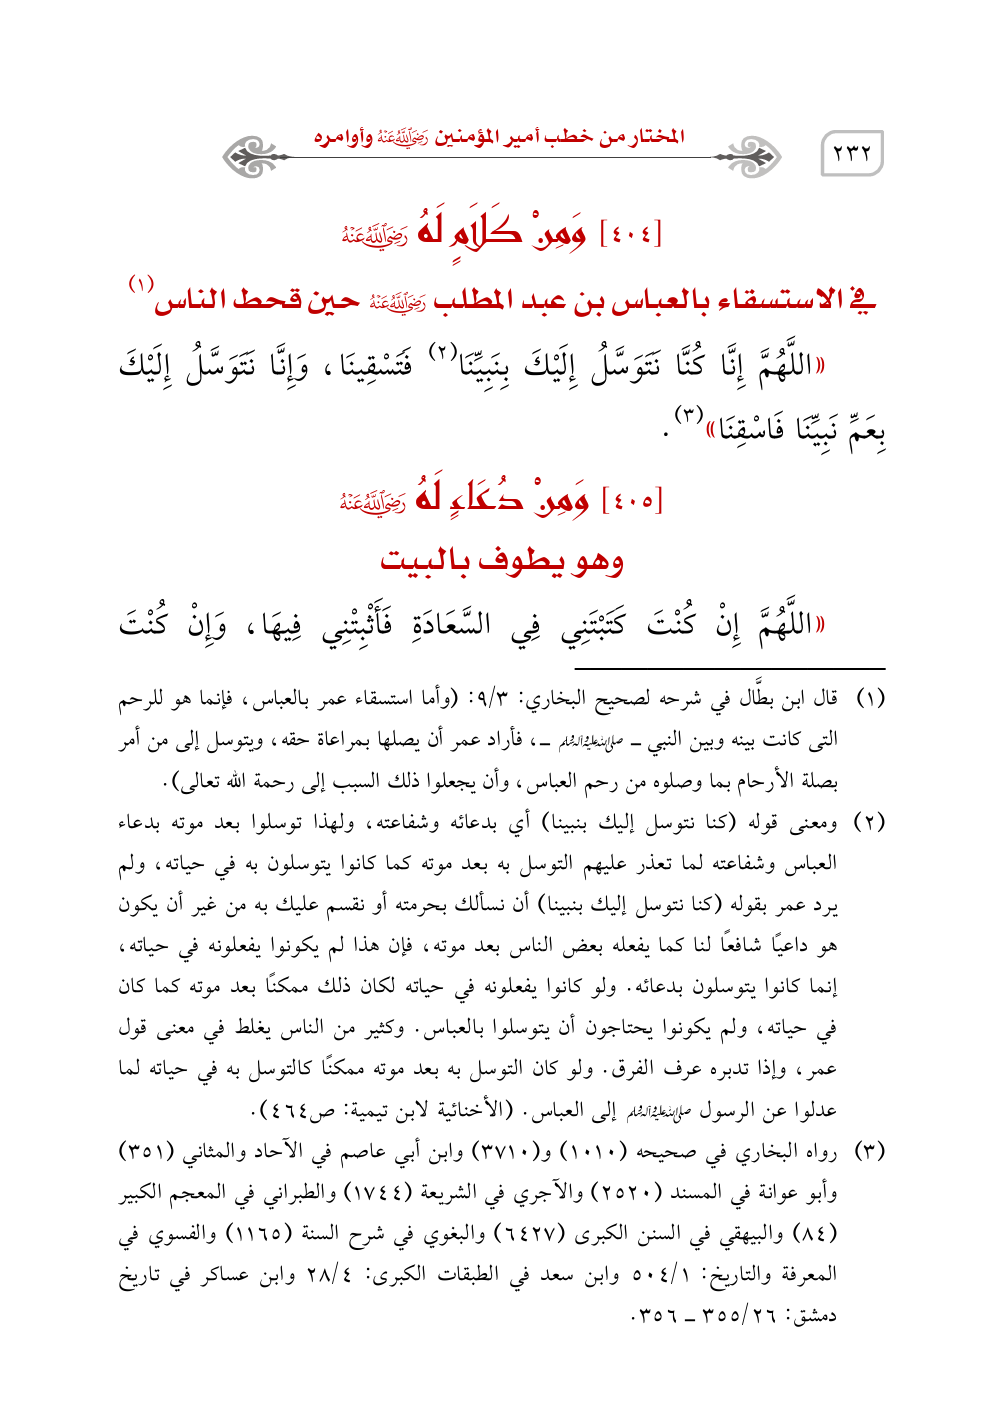 ٢٣٢
المختار من خطب أمير المؤمنين رَضِيَ اللَّهُ عَنْهُ وأوامره
[٤٠٤] وَمِنْ كَلَامٍ لَهُ رَضِيَ اللَّهُ عَنْهُ
في الاستسقاء بالعباس بن عبد المطلب رَضِيَ اللَّهُ عَنْهُ حين قحط الناس(١)
«اللَّهُمَّ إِنَّا كُنَّا نَتَوَسَّلُ إِلَيْكَ بِنَبِيِّنَا(٢) فَتَسْقِينَا، وَإِنَّا نَتَوَسَّلُ إِلَيْكَ
بِعَمِّ نَبِيِّنَا فَاسْقِنَا»(٣).
[٤٠٥] وَمِنْ دُعَاءٍ لَهُ رَضِيَ اللَّهُ عَنْهُ
وهو يطوف بالبيت
«اللَّهُمَّ إِنْ كُنْتَ كَتَبْتَنِي فِي السَّعَادَةِ فَأَثْبِتْنِي فِيهَا، وَإِنْ كُنْتَ
(١) قال ابن بطَّال في شرحه لصحيح البخاري: ٩/٣: (وأما استسقاء عمر بالعباس، فإنما هو للرحم
التى كانت بينه وبين النبي ـ صلى الله عليه وآله وسلم ـ، فأراد عمر أن يصلها بمراعاة حقه، ويتوسل إلى من أمر
بصلة الأرحام بما وصلوه من رحم العباس، وأن يجعلوا ذلك السبب إلى رحمة الله تعالى).
(٢) ومعنى قوله (كنا نتوسل إليك بنبينا) أي بدعائه وشفاعته، ولهذا توسلوا بعد موته بدعاء
العباس وشفاعته لما تعذر عليهم التوسل به بعد موته كما كانوا يتوسلون به في حياته، ولم
يرد عمر بقوله (كنا نتوسل إليك بنبينا) أن نسألك بحرمته أو نقسم عليك به من غير أن يكون
هو داعيًا شافعًا لنا كما يفعله بعض الناس بعد موته، فإن هذا لم يكونوا يفعلونه في حياته،
إنما كانوا يتوسلون بدعائه. ولو كانوا يفعلونه في حياته لكان ذلك ممكنًا بعد موته كما كان
في حياته، ولم يكونوا يحتاجون أن يتوسلوا بالعباس. وكثير من الناس يغلط في معنى قول
عمر، وإذا تدبره عرف الفرق. ولو كان التوسل به بعد موته ممكنًا كالتوسل به في حياته لما
عدلوا عن الرسول صلى الله عليه وآله وسلم إلى العباس. (الأخنائية لابن تيمية: ص٤٦٤).
(٣) رواه البخاري في صحيحه (١٠١٠) و(٣٧١٠) وابن أبي عاصم في الآحاد والمثاني (٣٥١)
وأبو عوانة في المسند (٢٥٢٠) والآجري في الشريعة (١٧٤٤) والطبراني في المعجم الكبير
(٨٤) والبيهقي في السنن الكبرى (٦٤٢٧) والبغوي في شرح السنة (١١٦٥) والفسوي في
المعرفة والتاريخ: ٥٠٤/١ وابن سعد في الطبقات الكبرى: ٢٨/٤ وابن عساكر في تاريخ
دمشق: ٣٥٥/٢٦ ـ ٣٥٦.